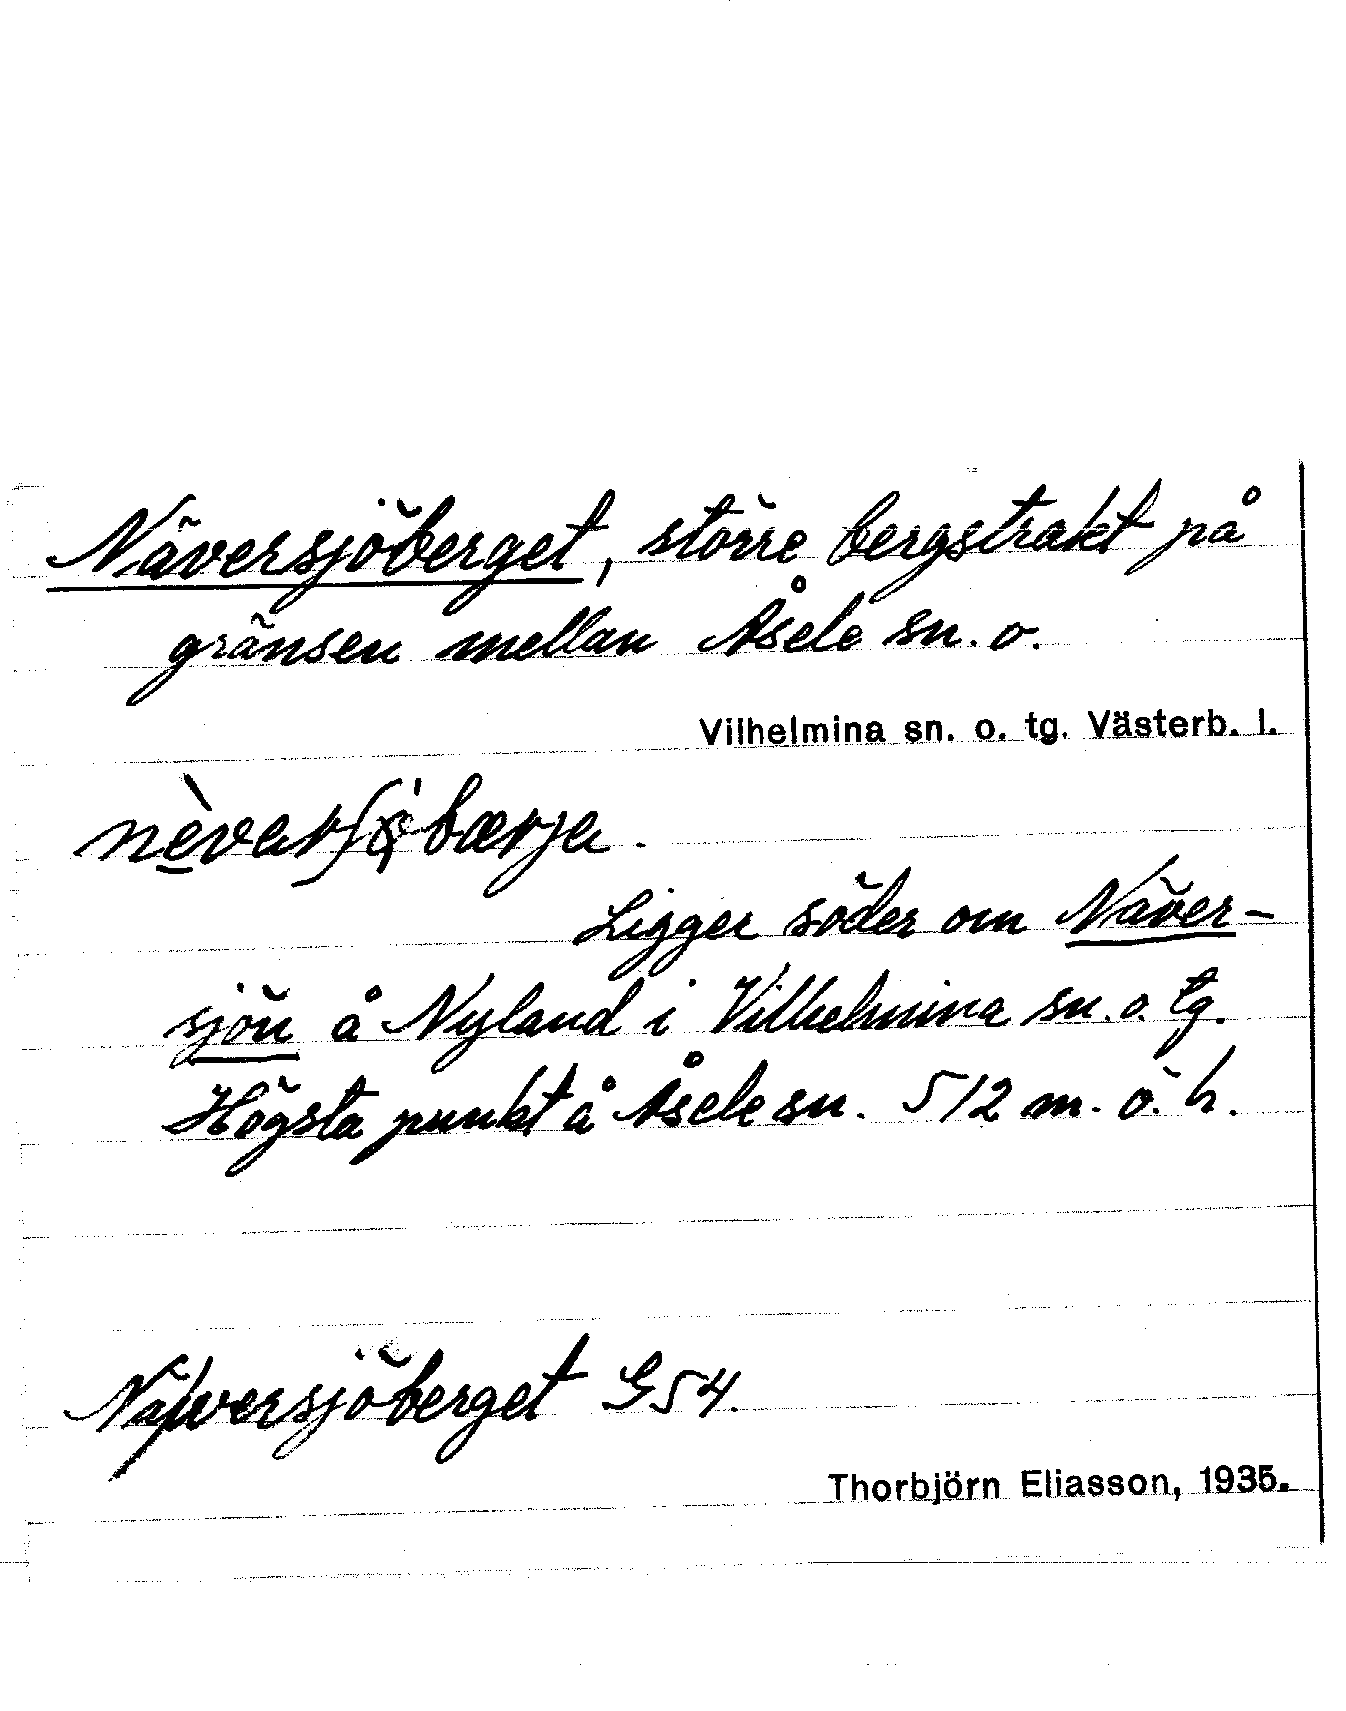 Näversjöberget, större bergstrakt på
gränsen mellan Åsele sn. o.
Vilhelmina sn. o. tg. Västerb. l.
Ligger söder om Näver-
sjön å Nyland i Vilhelmina sn. o. tg.
Högsta punkt å Åsele sn. 512 m. ö. h.
Näversjöberget G54.
Thorbjörn Eliasson, 1935.